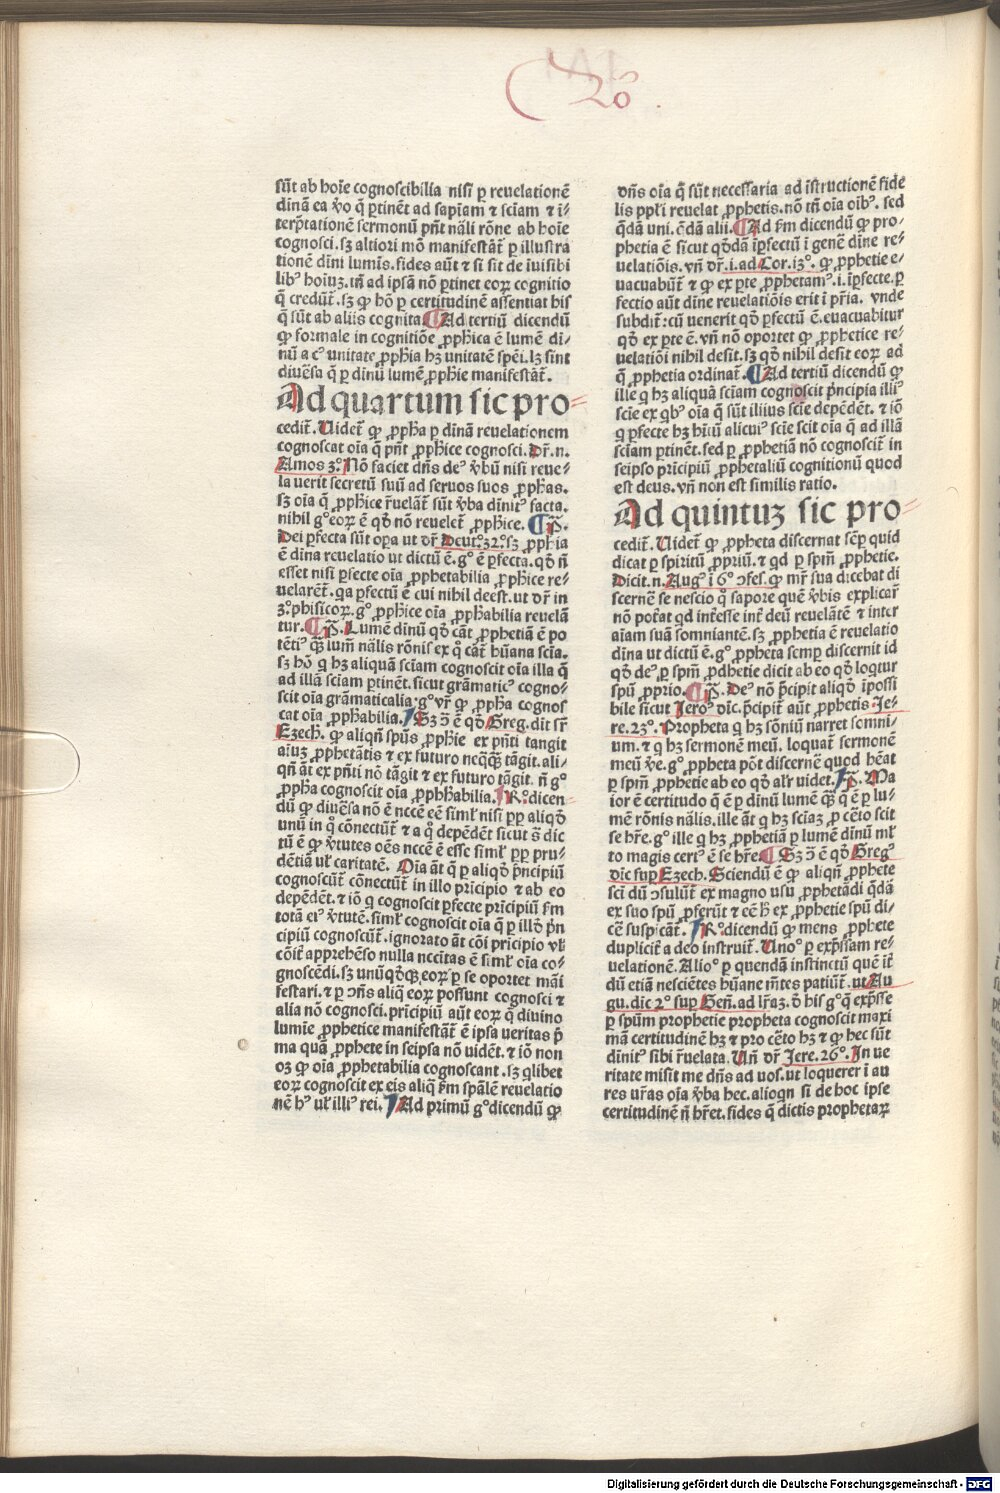 2o.
sūt ab hoīe cognoscibilia nisi ꝑ reuelationē
dīnā ea ꝟo q̄ ꝑtinēt ad sapīam ⁊ sciam ⁊ i⸗
terp̄tationē sermonū pn̄t nāli rōne ab hoīe
cognosci.sꝫ altiori mō manifestāt᷑ ꝑ illustra
tionē dīni lumīs.fides aūt ⁊ si sit de īuisibi
libꝰ hoīuꝫ.tn̄ ad ipsā nō ꝑtinet eoꝝ cognitio
q̄ credūt᷑.sꝫ ꝙ hō ꝑ certitudinē assentiat his
q̄ sūt ab aliis cognita.¶Ad tertiū dicendū
ꝙ formale in cognitiōe ꝓpħica ē lumē di⸗
nū a cꝰ unitate ꝓpħia hꝫ unitatē spēi.lꝫ sint
diuēsa q̄ ꝑ dinū lumē ꝓpħie manifestāt᷑.
Ad quartum sic pro⸗
cedit᷑.Uidet᷑ ꝙ ꝓpħa ꝑ dīnā reuelationem
cognoscat oīa q̄ pn̄t ꝓpħice cognosci.Dr̄.n.
Amos 3.°Nō faciet dn̄s deꝰ ꝟbū nisi reue⸗
la uerit secretū suū ad seruos suos ꝓpħas.
sꝫ oīa q̄ ꝓpħice r̄uelāt᷑ sūt ꝟba dīnitꝰ facta.
nihil g°eoꝝ ē qd̄ nō reuelet᷑ ꝓpħice.¶P̄.
Dei ꝑfecta sūt oꝑa ut dr̄ Deut.°32.°sꝫ ꝓpħia
ē dīna reuelatio ut dictū ē.g° ē ꝑfecta.qd̄ n̄
esset nisi ꝑfecte oīa ꝓpħetabilia ꝓpħice re⸗
uelarēt᷑.qa ꝑfectū ē cui nihil deest.ut dr̄ in
3.°phisicoꝝ.g° ꝓpħice oīa ꝓpħabilia reuelā
tur.¶P̄.Lumē dīnū qd̄ cāt ꝓpħetiā ē po
tētiꝰ q̄ꝫ lum̄ nālis rōnis ex q̄ cāt᷑ hūana scīa.
sꝫ hō q hꝫ aliquā scīam cognoscit oīa illa q̄
ad illā scīam ꝑtinēt.sicut grāmaticꝰ cogno⸗
scit oīa grāmaticalia.g°ur̄ ꝙ ꝓpħa cognos
cat oīa ꝓpħabilia.¶Sꝫ ↄ̄ ē qd̄ Greg.dīt sr̄
Ezech̄.ꝙ aliqn̄ spūs ꝓpħie ex pn̄ti tangit
aīuꝫ ꝓpħetātis ⁊ ex futuro neq̄q̄ꝫ tāgit.ali⸗
qn̄ āt ex pn̄ti nō tāgit ⁊ ex futuro tāgit.n̄ g°
ꝓpħa cognoscit oīa ꝓpħħabilia.¶R.°dicen⸗
dū ꝙ diuēsa nō ē nccē eē siml̄ nisi ꝓp aliqd̄
unū in q̄ cōnectūt᷑ ⁊ a q̄ depēdēt sicut s̄ dic
tū ē ꝙ ꝟtutes oēs nccē ē esse siml̄ ꝓp pru⸗
dētiā ul̄ caritatē. Oīa āt q̄ ꝑ aliqd̄ p̄ncipiū
cognoscūt᷑ cōnectūt᷑ in illo pricipio ⁊ ab eo
depēdēt.⁊ iō q cognoscit ꝑfecte pricipiū s̄m
totā eiꝰ ꝟtutē.siml̄ cognoscit oīa q̄ ꝑ illd̄ p̄n
cipiū cognoscūt᷑.ignorato āt cōi pricipio ul̄
cōit᷑ appreħēso nulla nccitas ē siml̄ oīa co⸗
gnoscēdi.sꝫ unūqd̄qꝫ eoꝝ ꝑ se oportet māi
festari.⁊ ꝑ ↄn̄s aliq̄ eoꝝ possunt cognosci ⁊
alia nō cognosci.pricipiū aūt eoꝝ q̄ diuino
lumīe ꝓpħetice manifestāt᷑ ē ipsa ueritas p̄
ma quā ꝓpħete in seipsa nō uidēt.⁊ iō non
oꝫ ꝙ oīa ꝓpħetabilia cognoscant.sꝫ qlibet
eoꝝ cognoscit ex eis aliq̄ s̄m spālē reuelatio
nē hꝰ ul̄ illiꝰ rei.¶Ad primū g°dicendū ꝙ
dn̄s oīa q̄ sūt necessaria ad īstructionē fide
lis ppl̄i reuelat ꝓpħetis.nō tn̄ oīa oībꝰ. sed
q̄dā uni.q̄dā alii.¶Ad s̄m dicendū ꝙ pro⸗
phetia ē sicut qd̄dā īꝑfectū ī genē dīne re⸗
uelatiōis.un̄ dr̄.i.ad Cor.i3.° ꝙ ꝓpħetie e⸗
uacuabūt᷑ ⁊ ꝙ ex ꝑte ꝓpħetamꝰ.i.īꝑfecte.ꝑ
fectio aūt dīne reuelatiōis erit ī pr̄ia. unde
subdit᷑:cū uenerit qd̄ ꝑfectū ē.euacuabitur
qd̄ ex ꝑte ē.un̄ nō oportet ꝙ ꝓpħetice re⸗
uelatiōi nihil desit.sꝫ qd̄ nihil desit eoꝝ ad
q̄ ꝓpħetia ordinat᷑.¶Ad tertiū dicendū ꝙ
ille q hꝫ aliquā scīam cognoscit p̄ncipia illiꝰ
scīe ex qbꝰ oīa q̄ sūt illius scīe depēdēt. ⁊ iō
q ꝑfecte hꝫ hītū alicuiꝰ scīe scit oīa q̄ ad illā
sciam ꝑtinēt.sed ꝑ ꝓpħetiā nō cognoscit᷑ in
seipso pricipiū ꝓpħetaliū cognitionū quod
est deus.un̄ non est similis ratio.
Ad quintuꝫ sic pro⸗
cedit᷑.Uidet᷑ ꝙ ꝓpħeta discernat sēꝑ quid
dicat ꝑ spiritū ꝓpriū.⁊ qd ꝑ spm̄ ꝓpħetie.
Dicit.n.Augꝰ ī 6° ↄfes.ꝙ mr̄ sua dicebat di
scernē se nescio q̄ sapore quē ꝟbis explicar̄
nō pot̄at qd int̄esse int᷑ deū reuelātē ⁊ inter
aīam suā somniantē.sꝫ ꝓpħetia ē reuelatio
dīna ut dictū ē.g° ꝓpħeta semꝑ discernit id
qd̄ deꝰ ꝑ spm̄ ꝓdħetie dicit ab eo qd̄ loqtur
spū ꝓprio.¶P̄. Deꝰ nō p̄cipit aliqd̄ īpossi
bile sicut Jero° dīc.p̄cipit aūt ꝓpħetis.Je⸗
re.23.° Propheta q hꝫ sōniū narret somni⸗
um.⁊ q hꝫ sermonē meū. loquat᷑ sermonē
meū ꝟe.g° ꝓpħeta pōt discernē quod hēat
ꝑ spm̄ ꝓpħetie ab eo qd̄ alr̄ uidet.¶P̄. Ma
ior ē certitudo q̄ ē ꝑ dīnū lumē q̄ꝫ q̄ ē ꝑ lu⸗
mē rōnis nālis.ille āt q hꝫ sciaꝫ ꝑ cēto scit
se hr̄e.g° ille q hꝫ ꝓpħetiā ꝑ lumē dīnū ml̄
to magis certꝰ ē se hr̄e.¶Sꝫ ↄ̄ ē qd̄ Gregꝰ
dīc suꝑ Ezech.Sciendū ē ꝙ aliqn̄ ꝓpħete
sc̄i dū ↄsulūt᷑ ex magno usu ꝓpħetādi q̄dā
ex suo spū ꝓferūt ⁊ eē h̄ ex ꝓpħetie spū di⸗
cē suspicāt᷑.¶R.°dicendū ꝙ mens ꝓpħete
duplicit᷑ a deo instruit᷑.Unoꝰ ꝑ exp̄ssam re⸗
uelationē.Alioꝰ ꝑ quendā instinctū quē īt᷑
dū etiā nesciētes hūane m̄tes patiūt᷑.ut Au
gu.dīc 2° suꝑ Gen̄.ad lr̄aꝫ.d̄ his g°q̄ exp̄sse
ꝑ spūm prophetie propheta cognoscit maxi
mā certitudinē hꝫ ⁊ pro cēto hꝫ ⁊ ꝙ hec sūt
dīnitꝰ sibi r̄uelata.Un̄ dr̄ Jere.26.° In ue
ritate misit me dn̄s ad uos.ut loquerer ī au
res ur̄as oīa ꝟba hec.alioqn si de hoc ipse
certitudinē n̄ hr̄et.fides q̄ dictis prophetaꝝ
Digitalisierung gefördert durch die Deutsche Forschungsgemeinschaft - DFG